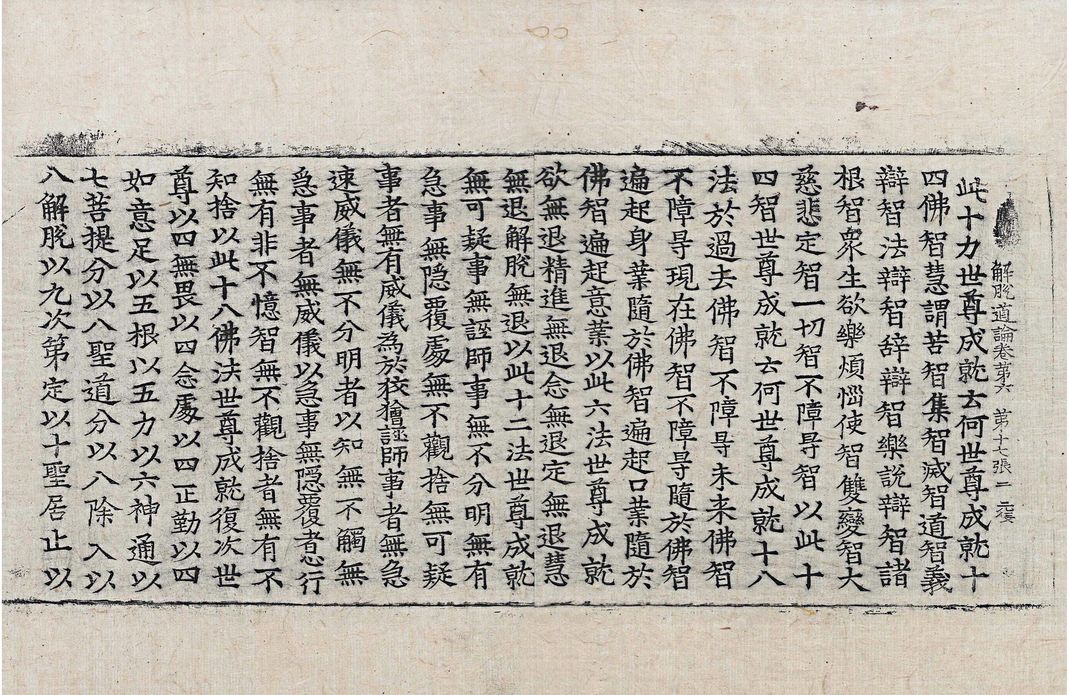 解脫道論卷第六 第十七張
此十力世尊成就云何世尊成就十
四佛智慧謂苦智集智滅智道智義
辯智法辯智辞辯智樂說辯智諸
根智衆生欲樂煩惱使智雙變智大
慈悲定智一切智不障㝵智以此十
四智世尊成就云何世尊成就十八
法於過去佛智不障㝵未来佛智
不障㝵現在佛智不障㝵隨於佛智
遍起身業隨於佛智遍起口業隨於
佛智遍起意業以此六法世尊成就
欲無退精進無退念無退定無退慧
無退解脫無退以此十二法世尊成就
無可疑事無誣師事無不分明無有
急事無隱覆處無不觀捨無可疑
事者無有威儀為於狡獪誣師事者無急
速威儀無不分明者以知無不觸無
急事者無威儀以急事無隱覆者心行
無有非不憶智無不觀捨者無有不
知捨以此十八佛法世尊成就復次世
尊以四無畏以四念處以四正勤以四
如意足以五根以五力以六神通以
七菩提分以八聖道分以八除入以
八解脫以九次第定以十聖居止以